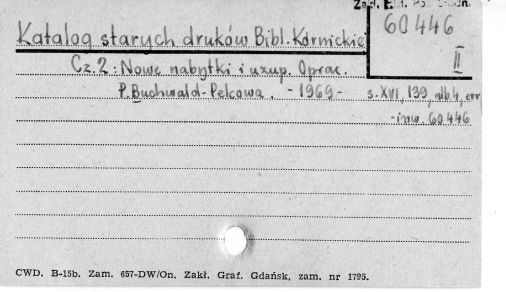 60446
II
Katalog starych druków Bibl. Kórnickiej
Cz. 2: Nowe nabytki i uzup. Oprac.
P. Buchwald-Pelcowa. - 1969 -
s. XVI, 139, nlb 4, err
- inw. 60446
CWD. B-15b. Zam. 657-DW/On. Zakł. Graf. Gdańsk, zam. nr 1795.